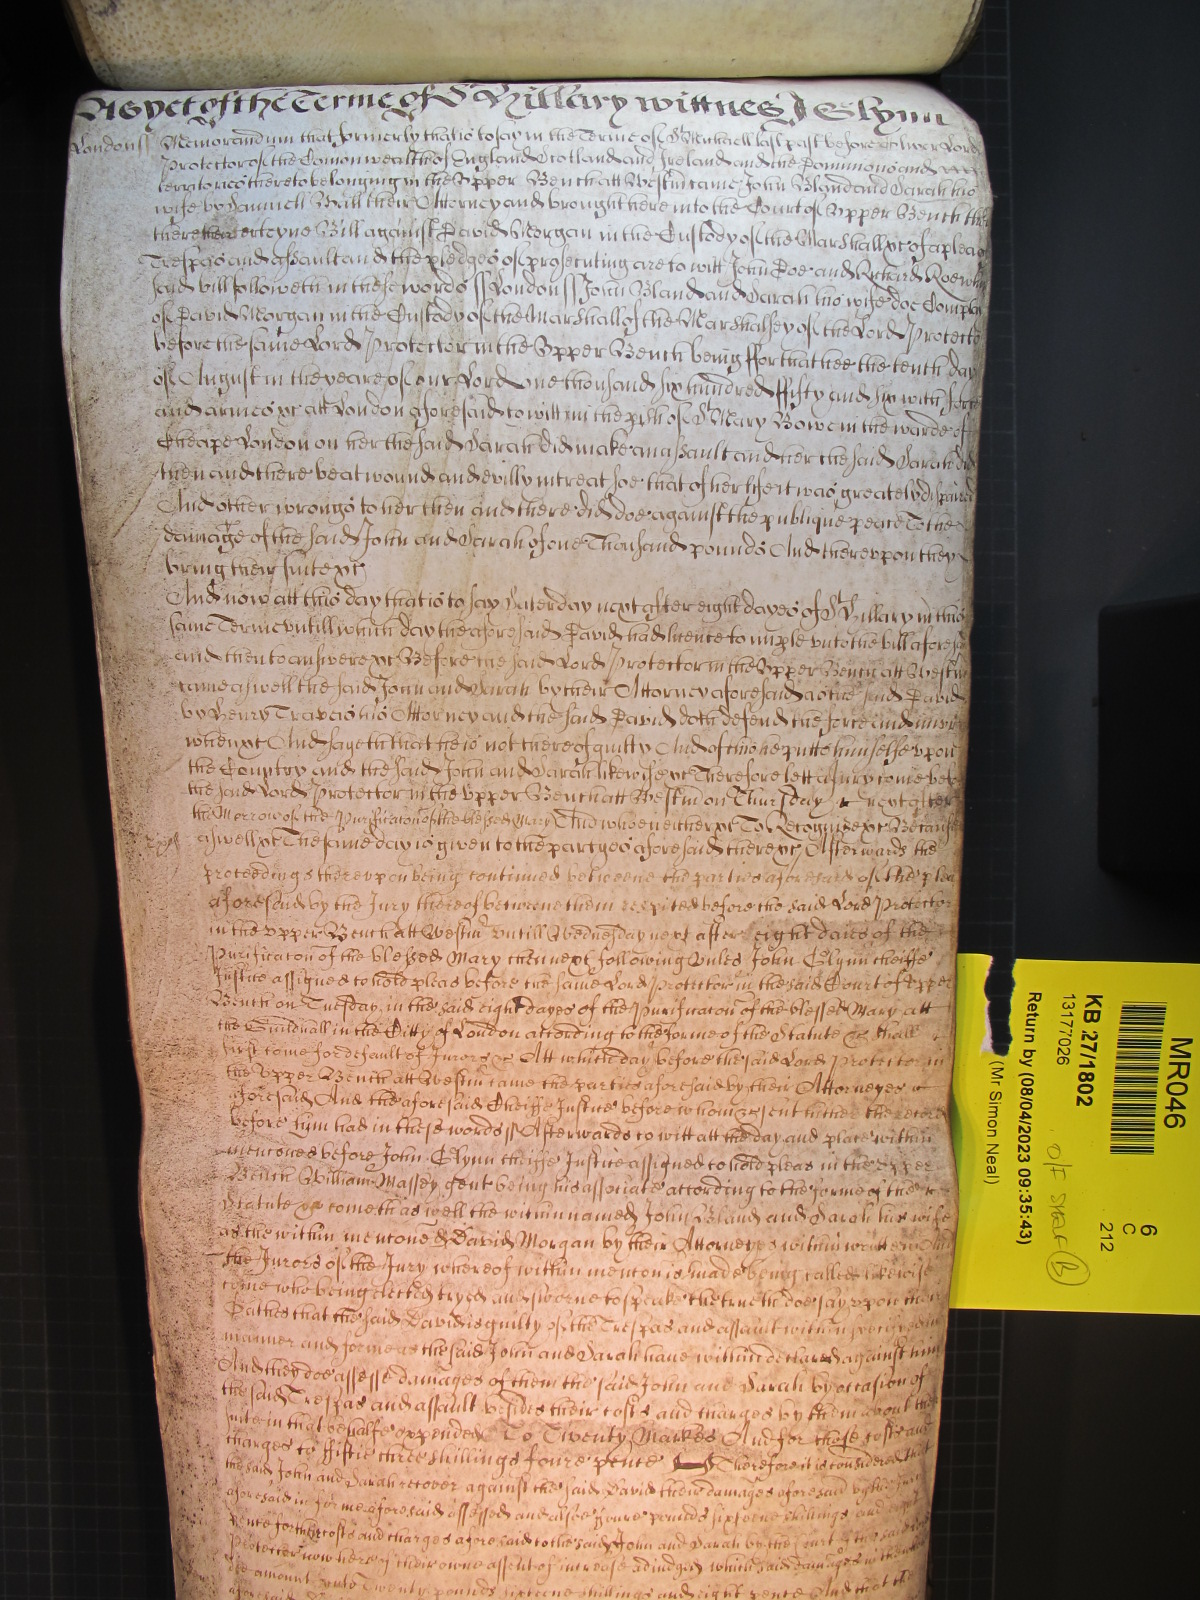 As yet of the Terme of St Hillary wittnes J Glynn
London ss Memorandum that formerly that is to say in the Terme of St Michaell last past before Oliver Lord
Protector of the Comonwealth of England Scotland and Ireland and the Dominions and
territories thereto belonging in the Upper Bench att Westmr came John Bland and Sarah his
wife by Samuell Brill their Attorney and brought here into the Court of Upper Bench then
there their certeyne Bill against David Morgan in the Custody of the Marshall &c of a plea of
Trespas and assault and the pledges of prosecuting are to witt John Doe and Richard Roe which
said bill followeth in these words ss London ss John Bland and Sarah his wife doe Complayne
of David Morgan in the Custody of the Marshall of the Marshalsey of the Lord Protector
before the same Lord Protector in the Upper Bench being ffor that hee the tenth day
of August in the yeare of our Lord one thousand six hundred ffifty and six with force
and armes &c att London aforesaid to witt in the pish of St Mary Bowe in the warde of
Cheape London on her the said Sarah did make an assault and her the said Sarah did
then and there beat wound and evilly intreat soe that of her life it was greately dispaired
And other wrongs to her then and there did doe against the publique peace To the
damage of the said John and Sarah of one Thousand pounds And thereupon they
bring their suite &c
And now att this day that is to say Saterday next after eight dayes of St Hillary in this
same Terme untill which day the aforesaid David had licence to imple unto the bill aforesaid
and then to answere &c Before the said Lord Protector in the Upper Bench att Westmr
came aswell the said John and Sarah by their Attorney aforesaid as the said David
by Henry Travis his Attorney and the said David doth defend the force and iniury
when &c And sayeth that he is not thereof guilty And of this he putts himselfe upon
the Country and the said John and Sarah likewise &c Therefore lett a Jury come before
the said Lord Protector in the Upper Bench att Westmr on Thursday next after
the Morrow of the Purificaton of the blessed Mary And who neither &c To Recognize &c Because
aswell &c The same day is given to the partyes aforesaid there &c Afterwards the
proceedings thereupon being continued betweene the parties aforesaid of the plea
aforesaid by the Jury thereof betweene them respited before the said Lord Protector
in the upper Bench att Westmr untill Wednesday next after eight daies of the
Purificaton of the blessed Mary then next following Unles John Glynn cheiffe
Justice assigned to hold pleas before the same Lord Protector in the said Court of Upper
Bench on Tuesday in the said eight dayes of the Purificaton of the blessed Mary att
the Guildhall in the Citty of London according to the forme of the Statute &c shall
first come for default of Jurors &c Att which day before the said Lord Protector in
the Upper Bench att Westmr came the parties aforesaid by their Attorneyes
aforesaid And the aforesaid Cheiffe Justice before whom &c sent hither the record
before him had in these words ss Afterwards to witt att the day and place within
mentoned before John Glynn cheiffe Justice assigned to hold pleas in the Upper
Bench William Massey gent being his associate according to the forme of the
Statute &c cometh as well the within named John Bland and Sarah his wife
as the within mentoned David Morgan by their Attorneyes within written And
the Jurors of the Jury whereof within menton is made being called likewise
come who being elected tryed and sworne to speake the trueth doe say upon their
Oathes that the said David is guilty of the Trespas and assault within specifyed in
manner and forme as the said John and Sarah have within declared against him
And they doe assesse damages of them the said John and Sarah by occasion of
the said Trespas and assault besides their costs and charges by them about their
suite in that behalfe expended To Twenty Markes And for those costs and
charges to ffiftie three shillings foure pence Therefore it is considered that
the said John and Sarah recover against the said David their damages aforesaid by the Jury
aforesaid in forme aforesaid assessed and alsoe foure pounds sixteene shillings and eight
pence for their costs and charges aforesaid to the said John and Sarah by the Court of the said Lord
Protector now here of their owne assent of increase adiudged which said damages in the whole
doe amount unto Twenty pounds sixteene shillings and eight pence And that the
MR046
6
C
212
KB 27/1802
13177026
Return by (08/04/2023 09:35:43)
(Mr Simon Neal)